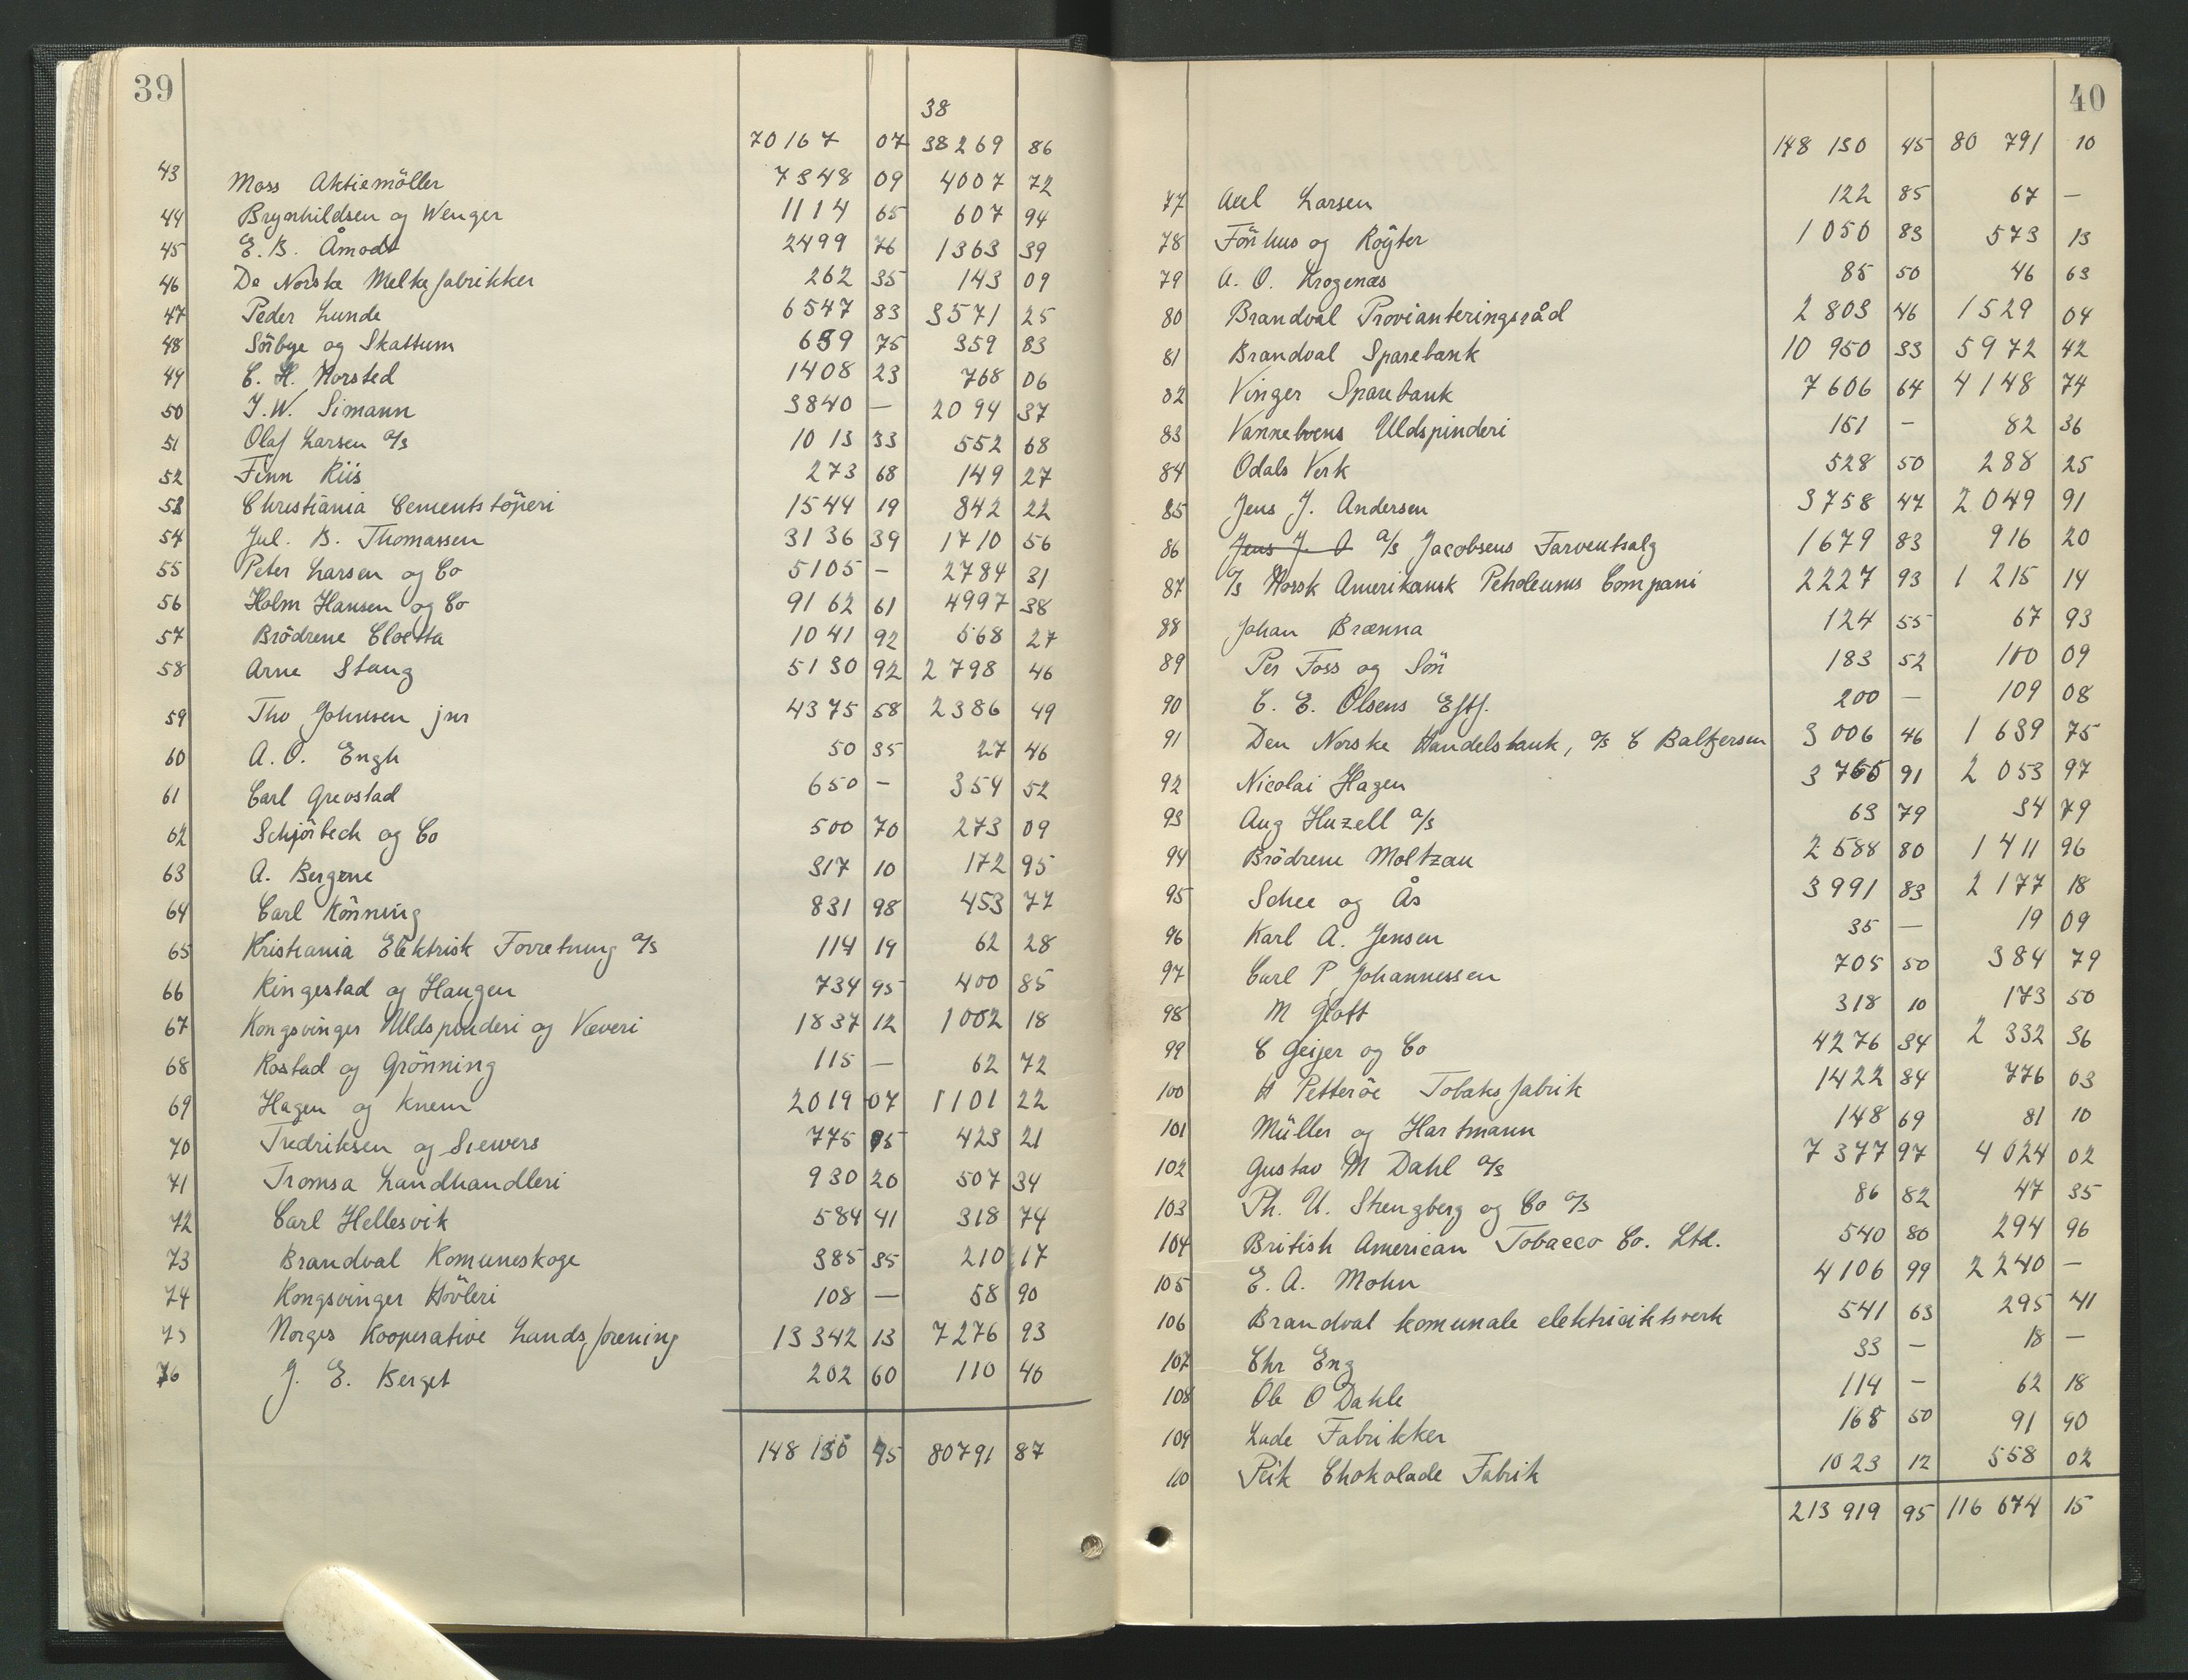 39
38
70167 07 38269 86
43 Moss Aktiemöller 7348 09 4007 72
44 Brynhildsen og Wenger 1114 65 607 94
45 E. B. Åmodt 2499 76 1363 39
46 De Norske Melkefabrikker 262 35 143 09
47 Peder Lunde 6547 83 3571 25
48 Sörbye og Skattum 659 75 359 83
49 C. H. Horsted 1408 23 768 06
50 J. W. Simann 3840 — 2094 37
51 Olaf Larsen a/s 1013 33 552 68
52 Finn Riis 273 68 149 27
53 Christiania Cementstöperi 1544 19 842 22
54 Jul. B. Thomassen 3136 39 1710 56
55 Peter Larsen og Co 5105 — 2784 31
56 Holm Hansen og Co 9162 61 4997 38
57 Brödrene Cloetta 1041 92 568 27
58 Arne Stang 5130 92 2798 46
59 Tho Johnsen jnr 4375 58 2386 49
60 A. O. Engh 50 35 27 46
61 Carl Grevstad 650 — 354 52
62 Schjörbeck og Co 500 70 273 09
63 A. Bergene 317 10 172 95
64 Carl Könning 831 98 453 77
65 Kristiania Elektrisk Forretning a/s 114 19 62 28
66 Ringestad og Haugen 734 95 400 85
67 Kongsvinger Uldspinderi og Væveri 1837 12 1002 18
68 Rostad og Grönning 115 — 62 72
69 Hagen og Knem 2019 07 1101 22
70 Fredriksen og Siewers 775 95 423 21
71 Tromsa Landhandleri 930 20 507 34
72 Carl Hellesvik 584 41 318 74
73 Brandval Komuneskoge 385 35 210 17
74 Kongsvinger Hövleri 108 — 58 90
75 Norges Kooperative Landsforening 13342 13 7276 93
76 J. E. Berget 202 60 110 40
148 130 45 80791 87
40
148 130 45 80 791 10
77 Axel Larsen 122 85 67 —
78 Fönhus og Röyter 1050 83 573 13
79 A. O. Krogenæs 85 50 46 63
80 Brandval Provianteringsråd 2 803 46 1529 04
81 Brandval Sparebank 10 950 33 5972 42
82 Vinger Sparebank 7606 64 4148 74
83 Vannebvens Uldspinderi 151 — 82 36
84 Odals Verk 528 50 288 25
85 Jens J. Andersen 3758 47 2 049 91
86 Jens J. A a/s Jacobsens Farveutsalg 1679 83 916 20
87 a/s Norsk Amerikansk Petroleums Compani 2227 93 1 215 14
88 Johan Brænna 124 55 67 93
89 Per Foss og Sön 183 52 100 09
90 C. E. Olsens Eftf. 200 — 109 08
91 Den Norske Handelsbank, a/s C Baltzersen 3 006 46 1 639 75
92 Nicolai Hagen 3 765 91 2 053 97
93 Aug Huzell a/s 63 79 34 79
94 Brödrene Moltzau 2 588 80 1 411 96
95 Schee og Ås 3991 83 2 177 18
96 Karl A. Jensen 35 — 19 09
97 Carl P Johannessen 705 50 384 79
98 M Glott 318 10 173 50
99 C Geijer og Co 4276 34 2 332 36
100 H Petteröe Tobaksfabrik 1422 84 776 03
101 Müller og Hartmann 148 69 81 10
102 Gustav M Dahl a/s 7 377 97 4 024 02
103 Ph. U. Strengberg og Co a/s 86 82 47 35
104 British American Tobacco Co. Ltd. 540 80 294 96
105 E. A. Mohn 4106 99 2240 —
106 Brandval komunale elektricitetsverk 541 63 295 41
107 Chr Eng 33 — 18 —
108 Ole O Dahle 114 — 62 18
109 Lade Fabrikker 168 50 91 90
110 Peik Chokolade Fabrik 1023 12 558 02
213 919 95 116 674 15